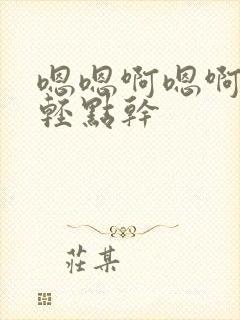 嗯嗯啊嗯啊
輕點幹
莊某